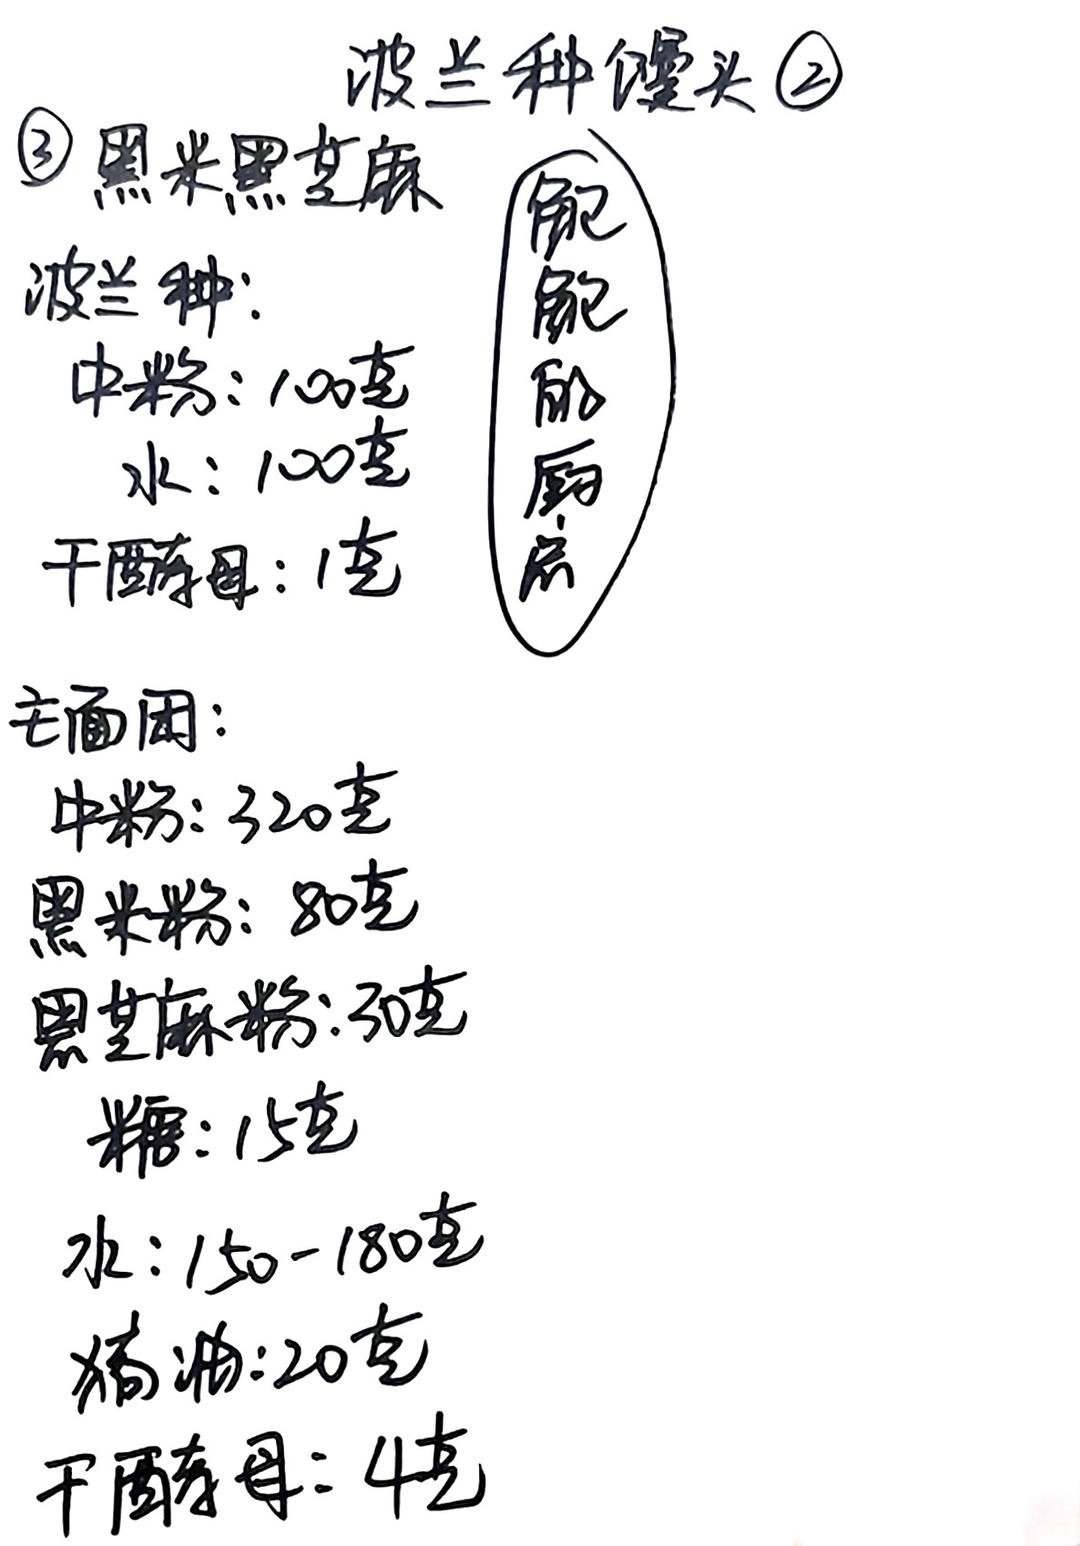 波兰种馒头②
③黑米黑芝麻
波兰种：
中粉：100克
水：100克
干酵母：1克
飽飽的厨房
主面团：
中粉：320克
黑米粉：80克
黑芝麻粉：30克
糖：15克
水：150-180克
猪油：20克
干酵母：4克